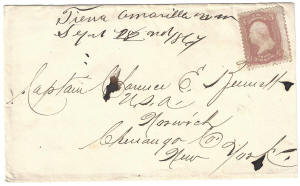 Tierra Amarilla N M
Sept 22nd 1867
Captain Clarence E. Bennett
U.S.A.
Norwich
Chenango Co
New York